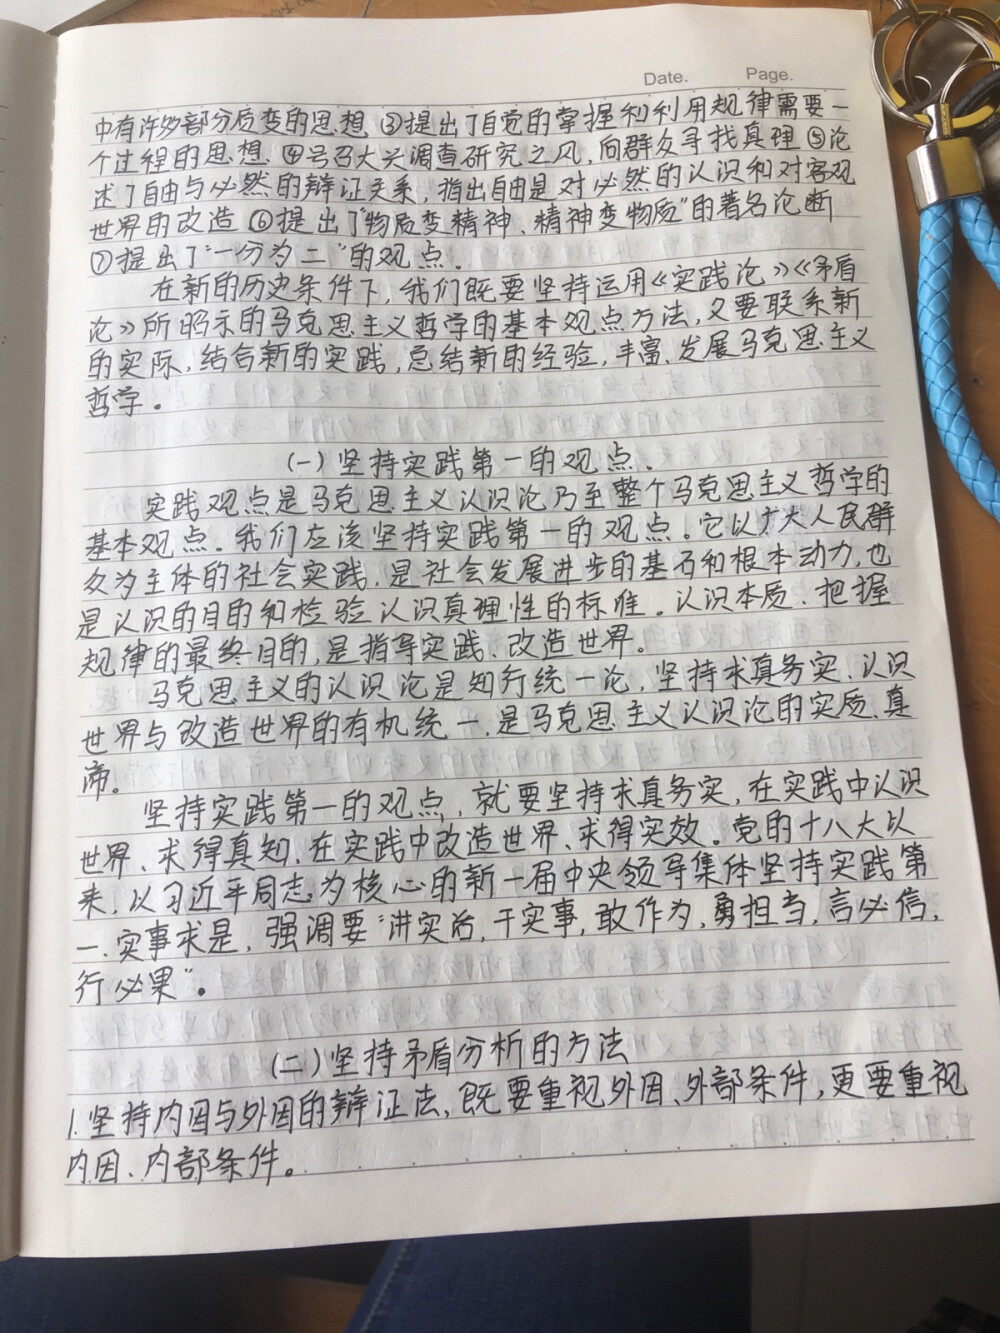 Date. Page.
中有许多部分质变的思想 ③提出了自觉的掌握和利用规律需要一
个过程的思想. ④号召大兴调查研究之风, 向群众寻找真理 ⑤论
述了自由与必然的辩证关系, 指出自由是对必然的认识和对客观
世界的改造 ⑥提出了"物质变精神、精神变物质"的著名论断
⑦提出了"一分为二"的观点.
在新的历史条件下, 我们既要坚持运用《实践论》《矛盾
论》所昭示的马克思主义哲学的基本观点方法, 又要联系新
的实际, 结合新的实践, 总结新的经验, 丰富、发展马克思主义
哲学。
(一) 坚持实践第一的观点.
实践观点是马克思主义认识论乃至整个马克思主义哲学的
基本观点. 我们应该坚持实践第一的观点. 它以广大人民群
众为主体的社会实践, 是社会发展进步的基石和根本动力, 也
是认识的目的和检验认识真理性的标准。认识本质、把握
规律的最终目的, 是指导实践、改造世界。
马克思主义的认识论是知行统一论, 坚持求真务实、认识
世界与改造世界的有机统一, 是马克思主义认识论的实质、真
谛。
坚持实践第一的观点, 就要坚持求真务实, 在实践中认识
世界、求得真知, 在实践中改造世界、求得实效。党的十八大以
来, 以习近平同志为核心的新一届中央领导集体坚持实践第
一、实事求是, 强调要"讲实治, 干实事, 敢作为, 勇担当, 言必信,
行必果"。
(二) 坚持矛盾分析的方法
1. 坚持内因与外因的辩证法, 既要重视外因、外部条件, 更要重视
内因、内部条件。